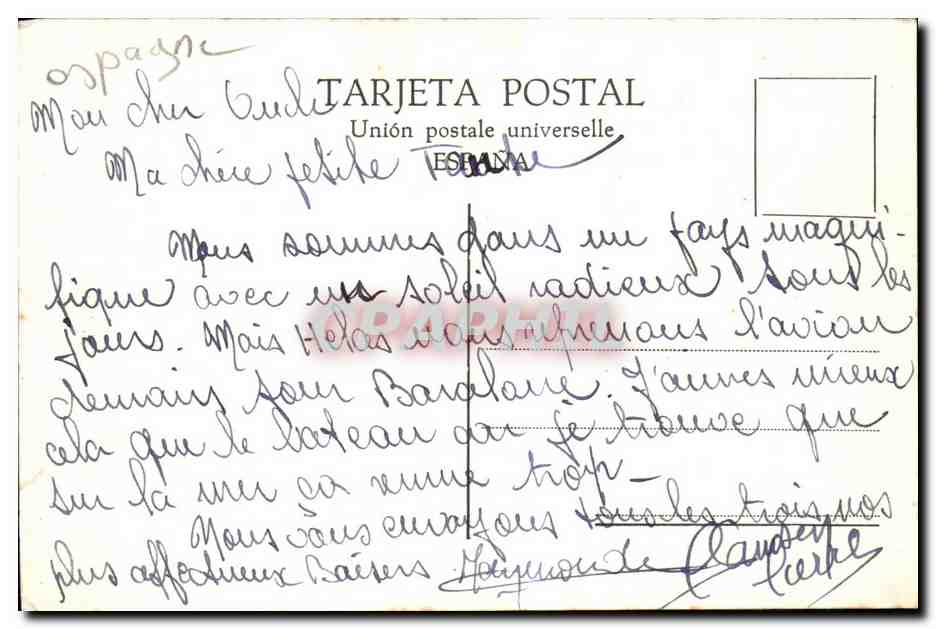 espagne
TARJETA POSTAL
Unión postale universelle
ESPAÑA
Mon cher Oncle
Ma chère petite Tante
Nous sommes dans un pays magni-
fique avec un soleil radieux tous les
jours. Mais Helas nous reprenons l'avion
demain pour Barcelone. J'aimes mieux
cela que le bateau car je trouve que
sur la mer ça remue trop -
Nous vous envoyons tous les trois nos
plus affectueux Baisers Raymonde
CPAPHIL